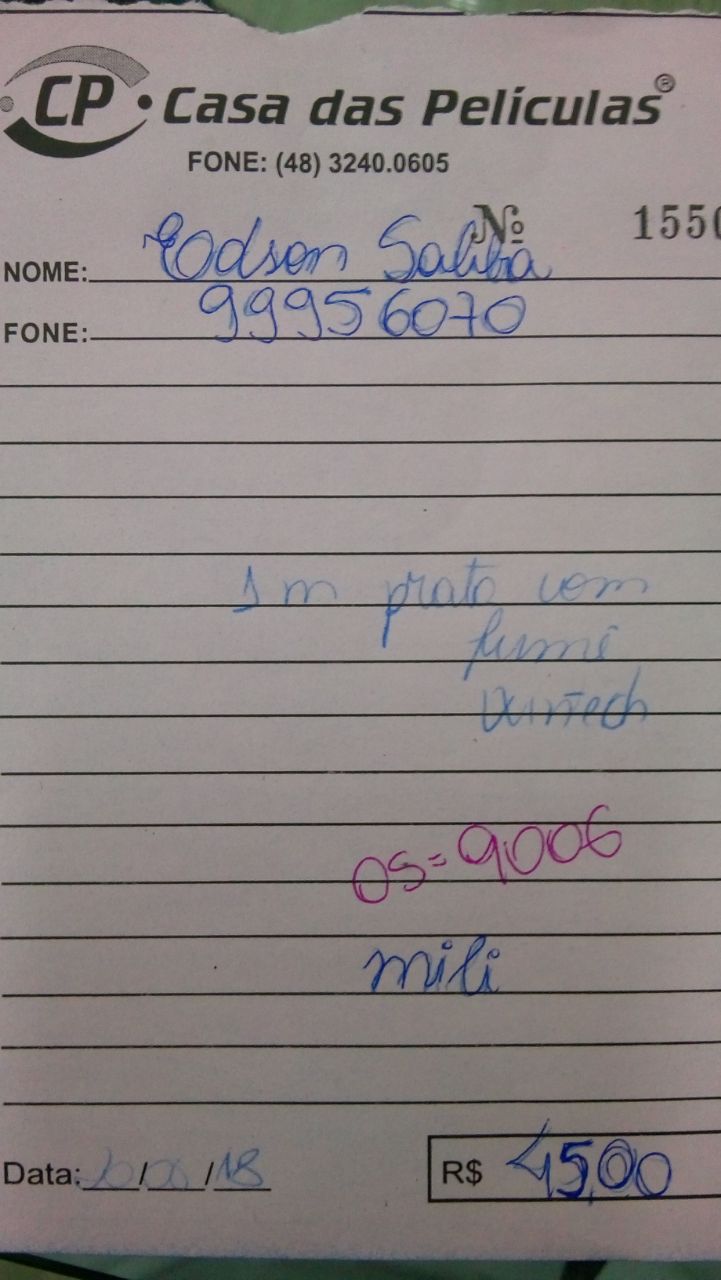 CP • Casa das Películas®
FONE: (48) 3240.0605
Nº 1550
NOME: Edson Saliba
FONE: 99956070
1 m prata com
fumê
OS= 9006
mili
Data: / /18
R$ 45,00